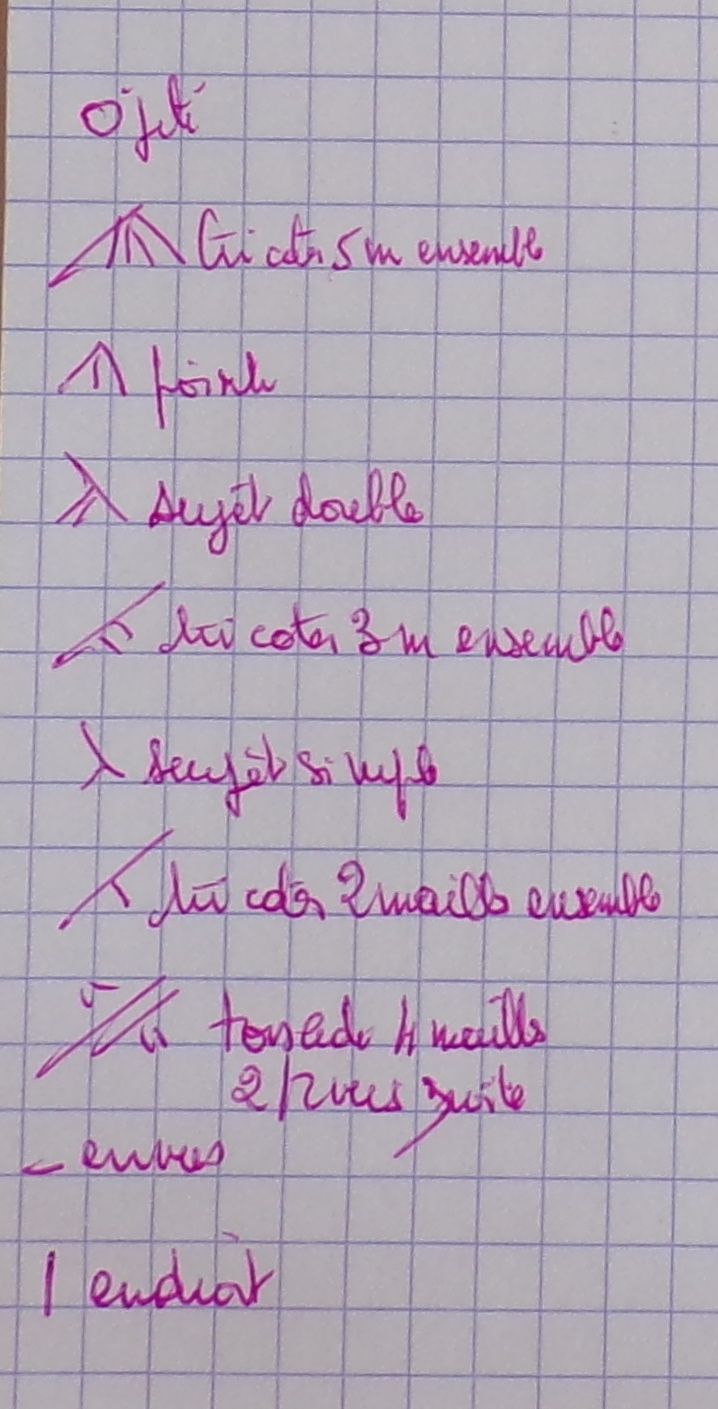 O jeté
tricoter 5 m ensemble
surjet double
tricoter 3 m ensemble
surjet simple
tricoter 2 mailles ensemble
torsade 4 mailles
2/2 vers
- envers
| endroit